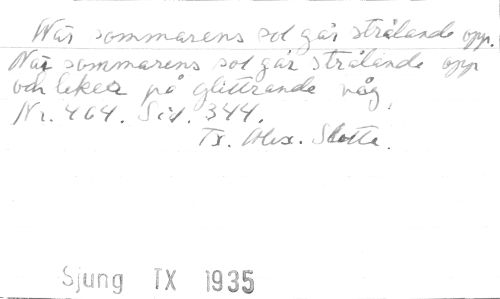 När sommarens sol går strålande opp.
När sommarens sol går strålande opp
och leker på glittrande våg,
Nr. 464. Sid. 344.
Tx. Alex. Slotte.
Sjung IX 1935